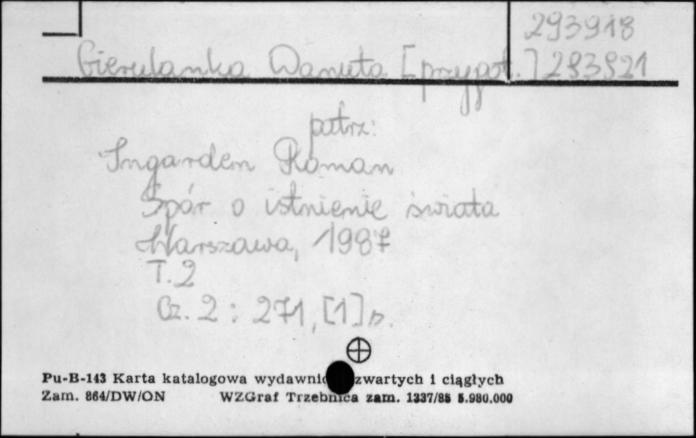 293918
Gierulanka Danuta [przygot.] 293921
patrz:
Ingarden Roman
Spór o istnienie świata
Warszawa, 1987
T. 2
Cz. 2 : 271, [1] s.
Pu-B-143 Karta katalogowa wydawnic zwartych i ciągłych
Zam. 864/DW/ON WZGraf Trzebnica zam. 1337/85 5.980.000